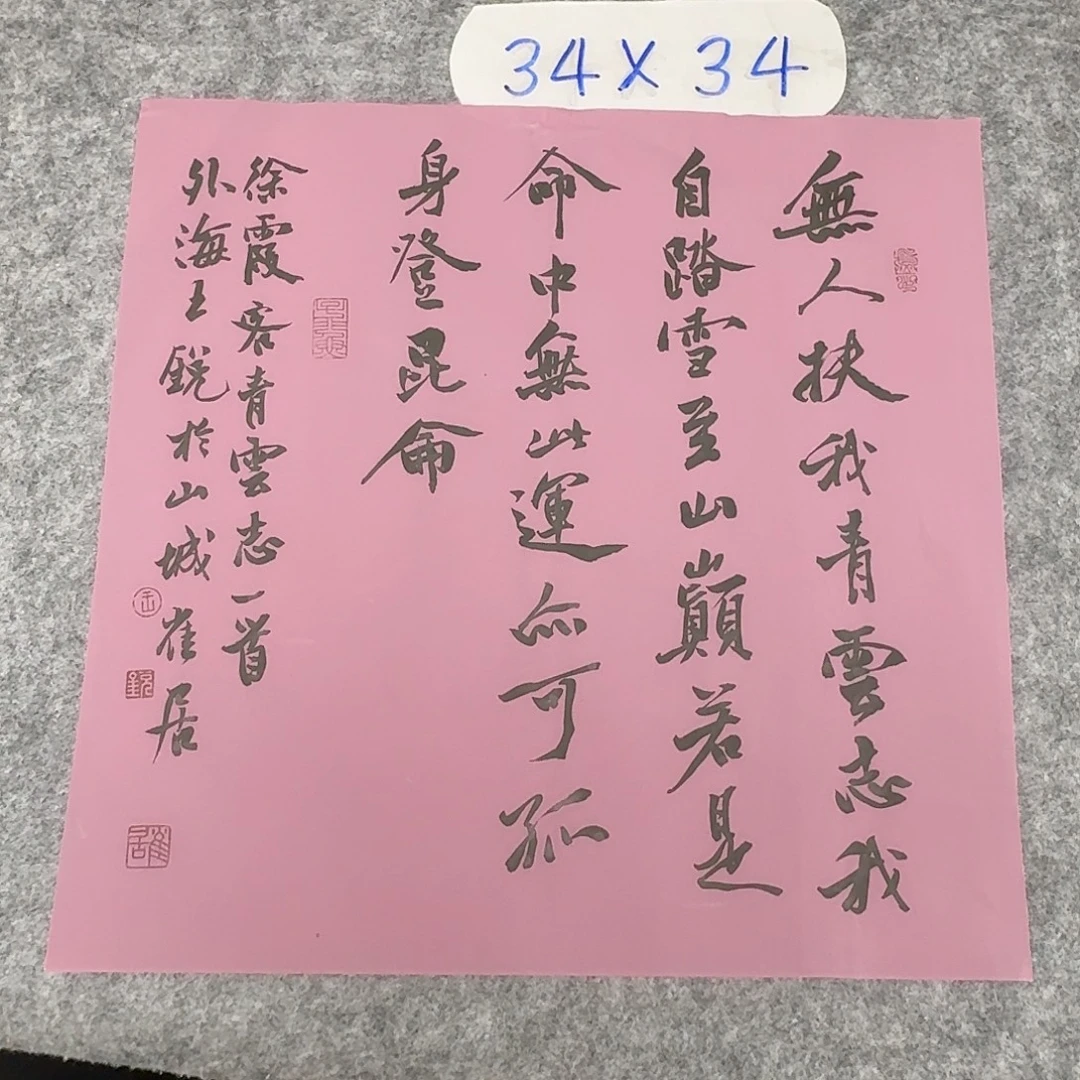 34×34
無人扶我青雲志我
自踏雪至山巔若是
命中無此運亦可孤
身登昆侖
徐霞客青雲志一首
外海王銳於山城崔居